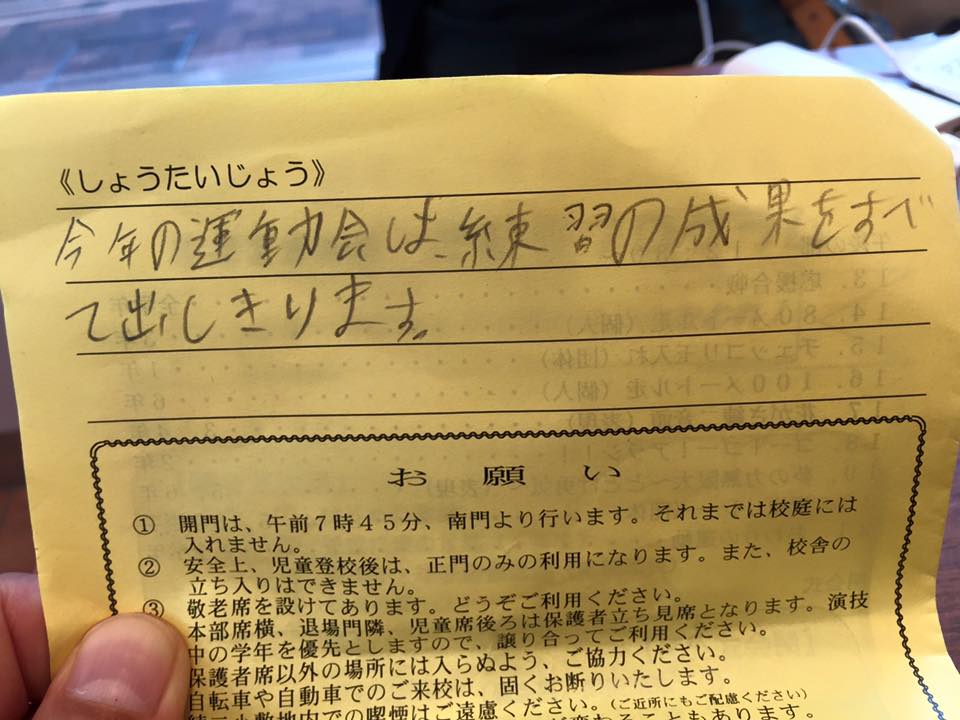 《しょうたいじょう》
今年の運動会は、練習の成果をすべ
て出しきります。
お願い
① 開門は、午前7時45分、南門より行います。それまでは校庭には
入れません。
② 安全上、児童登校後は、正門のみの利用になります。また、校舎の
立ち入りはできません。
③ 敬老席を設けてあります。どうぞご利用ください。
本部席横、退場門隣、児童席後ろは保護者立ち見席となります。演技
中の学年を優先としますので、譲り合ってご利用ください。
保護者席以外の場所には入らぬよう、ご協力ください。
自転車や自動車でのご来校は、固くお断りいたします。
敷地内での喫煙はご遠慮ください。(ご近所にもご配慮ください)
変わることもあります。